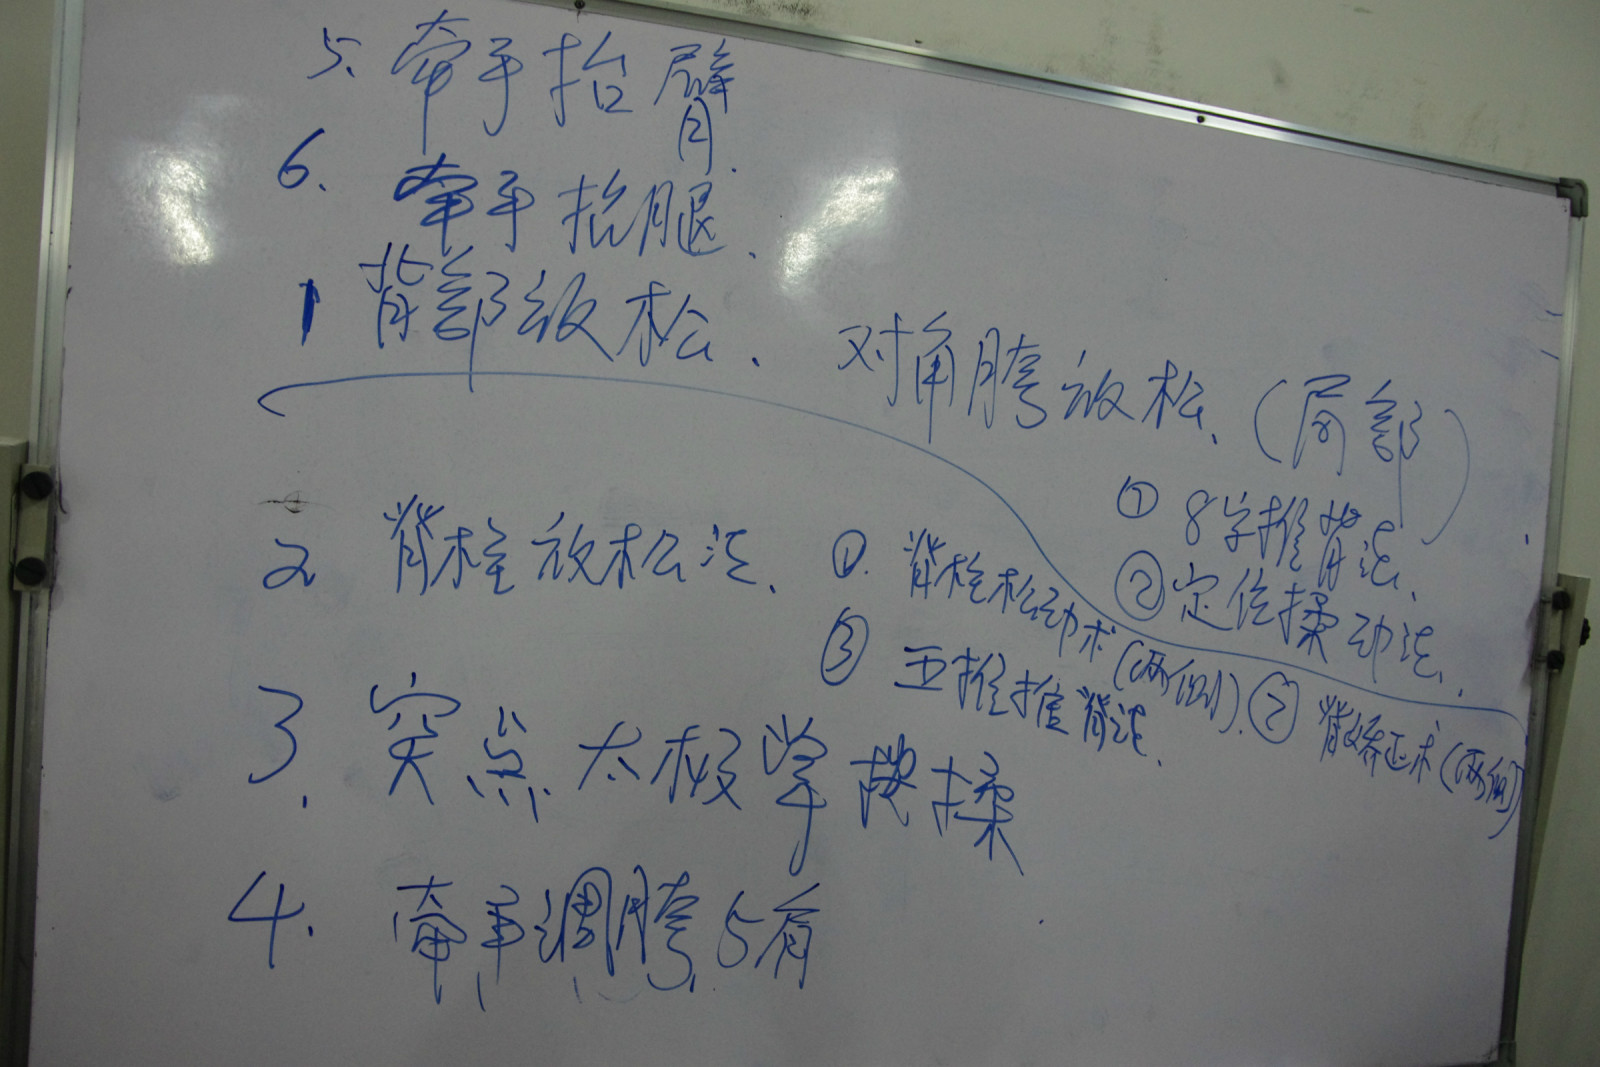 5. 牵手抬臂.
6. 牵手抬腿.
1 背部放松. 对角胯放松. (局部)
① 8字推背法.
② 定位揉动法.
2 脊柱放松法. ①. 脊柱松动术(两侧). ② 脊矫正术(两侧)
③ 五推推脊法.
3. 突点太极掌揉
4. 牵手调胯与肩